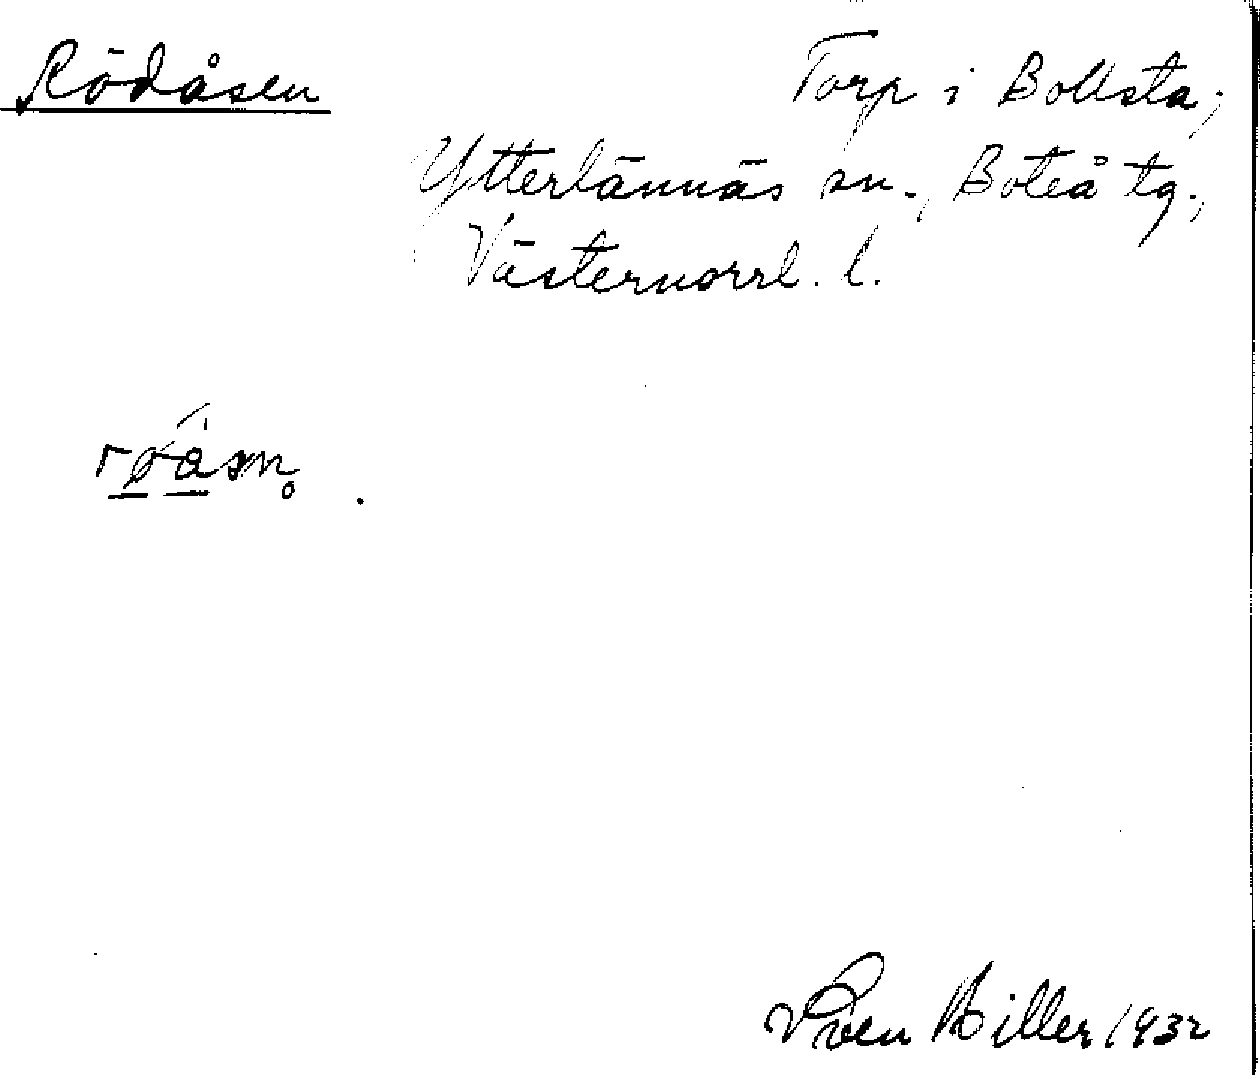 Rödåsen
Torp i Bollsta,
Ytterlännäs sn., Boteå tg.,
Västernorrl. l.
røåsn̥.
Sven Hiller 1932